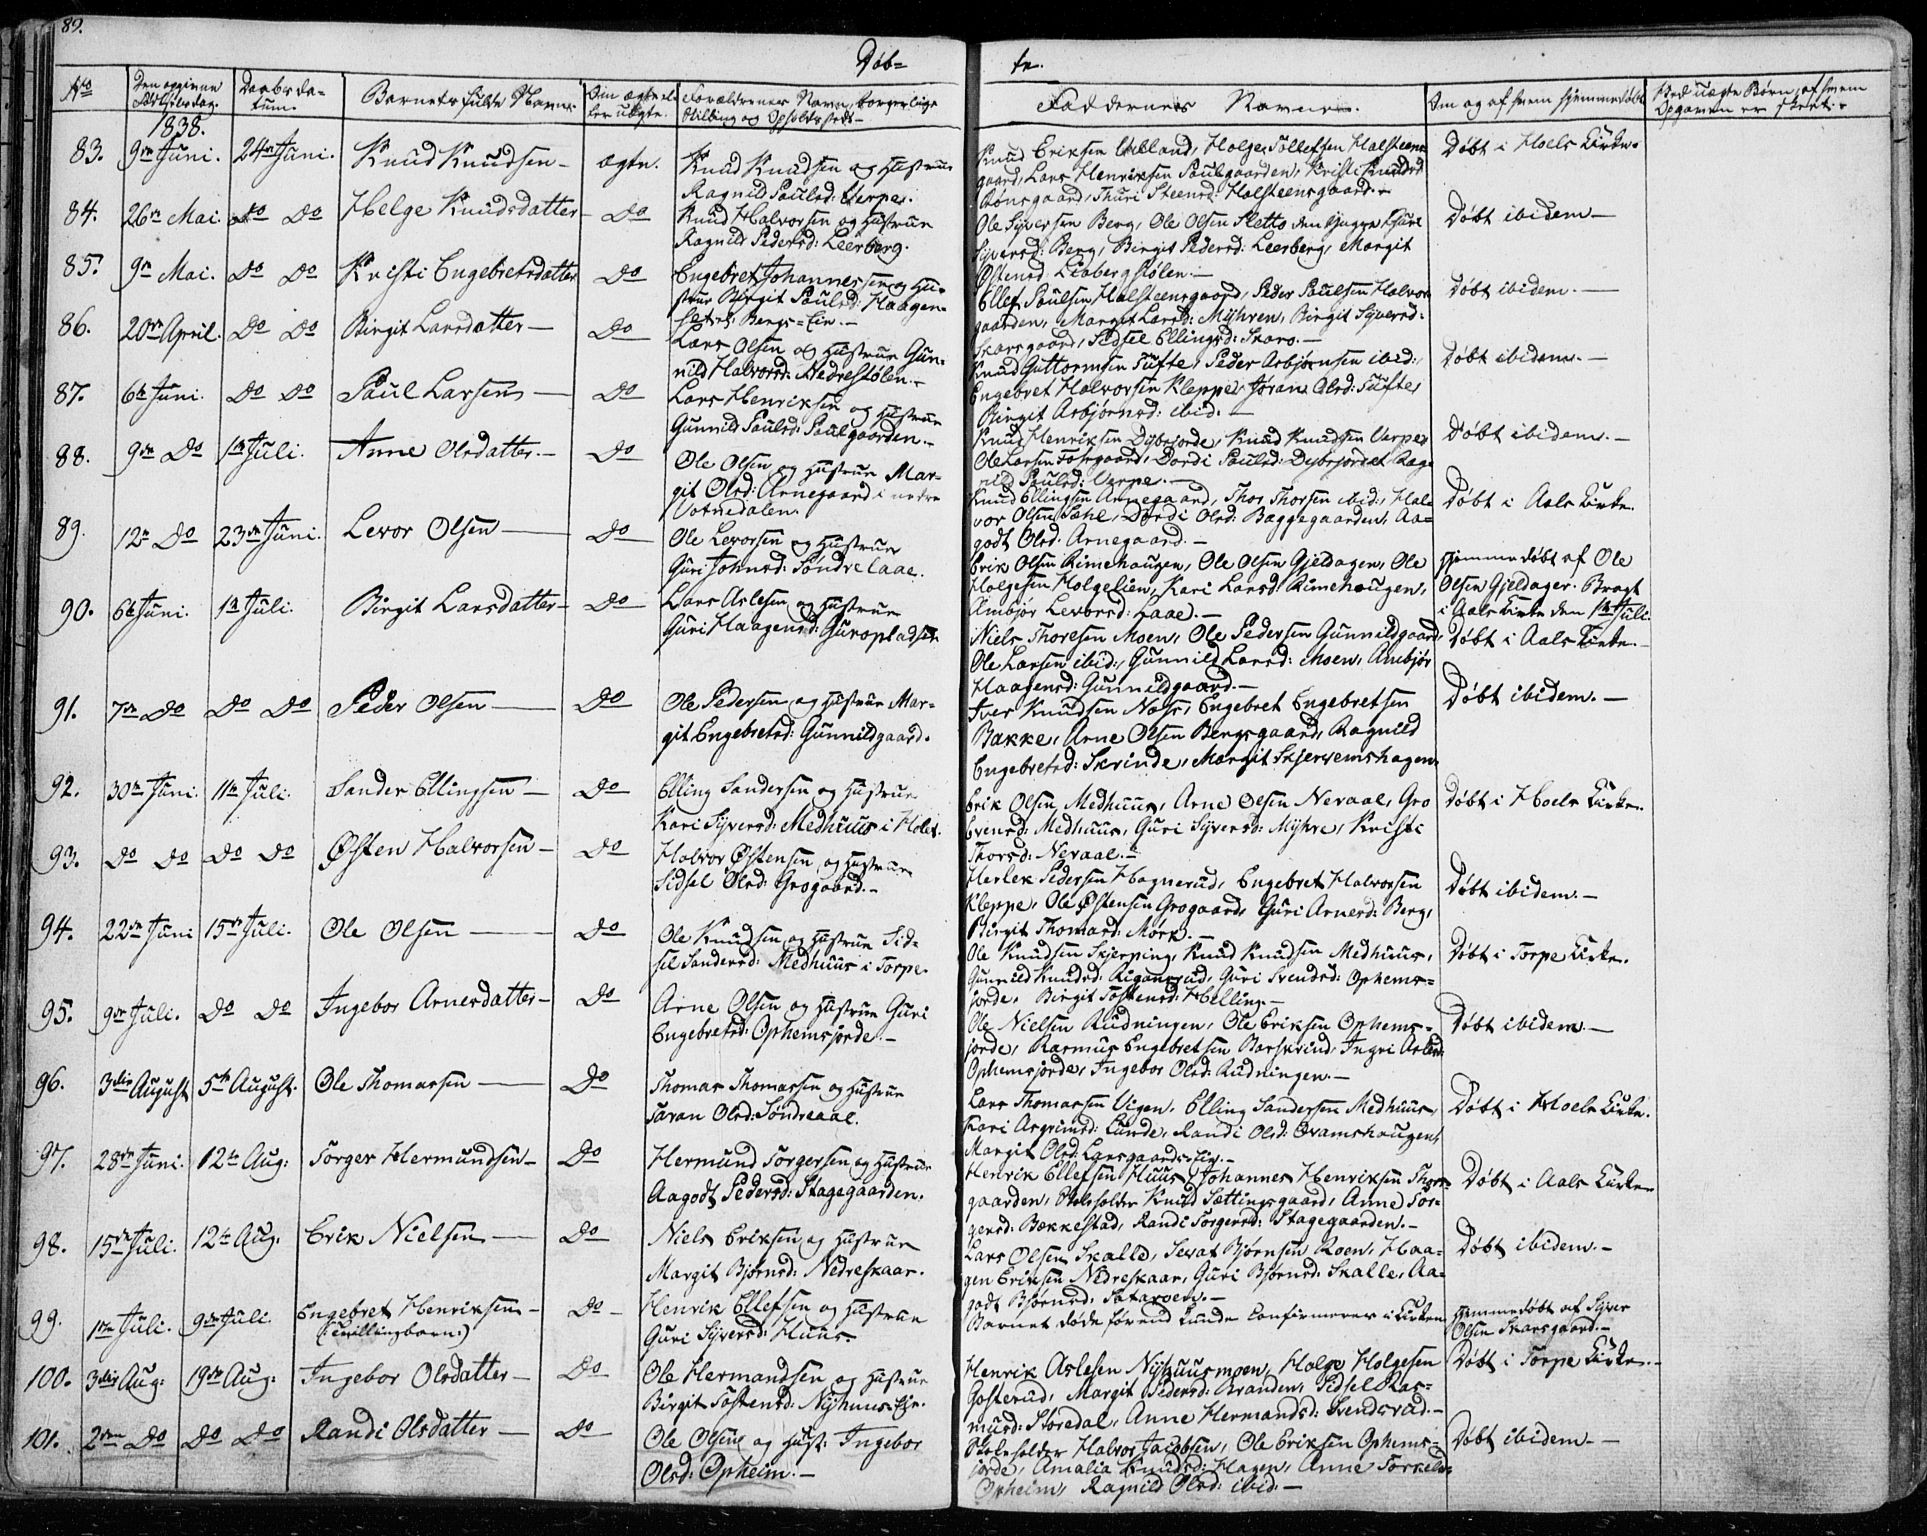 89.
Døb=
te.
No
Den opgivne
Fødselsdag.
Daabsda=
tum.
Barnets fulde Navn.
Om ægte el=
ler uægte.
Forældrenes Navn, borgerlige
Stilling og Opholdssted.
Faddernes Navne.
Om og af hvem hjemmedøbt
Ved uægte Børn, af hvem
Opgaven er skeet.
1838.
83. 9de Juni. 24de Juni. Knud Knudsen ægte. Knud Knudsen og Hustrue
Ragnild Paulsd: Verpe.
Knud Eriksen Holge Tollefsen Halsteens=
gaard, Lars Henriksen Paulgaarden, Kristi Knudsd
Rønsgaard, Thuri Steensd: Halsteensgaard.
Døbt i Hoels Kirke.
84. 26de Mai. Do Do Helge Knudsdatter Do Knud Halvorsen og Hustrue
Ragnild Pedersd: Leerberg.
Ole Syversen Berg, Ole Olsen Sletto den yngre,
Syversd: Berg, Birgit Pedersd: Leerberg, Margit
Østensd: Liabergstølen.
Døbt ibidem
85. 9de Mai. Do Do Kristi Engebretsdatter Do Engebret Johannessen og Hu=
strue Birgit Paulsd: Haagen=
Bergs=Eie.
Ellef Paulsen Halsteensgaard, Peder Paulsen Halvor
gaarden, Margit Larsd: Myhren, Birgit Syversd:
Skarsgaard, Sidsel Ellingsd: Skaro.
Døbt ibidem.
86. 20de April. Do Do Birgit Larsdatter Do Lars Olsen og Hustrue Gun=
nild Halvorsd: Nedrestølen.
Knud Guttormsen Tufte, Peder Asbjørnsen ibid:,
Engebret Halvorsen Kleppe, Jøran Olsd: Tufte,
Birgit Asbjørnsd: ibid:
Døbt ibidem.
87. 6te Juni. Do Do Paul Larsen Do Lars Henriksen og Hustrue
Gunnild Paulsd: Paulgaarden.
Knud Henriksen Dybesjorde, Knud Knudsen Verpe,
Ole Larsen Dordi Paulsd: Dybesjordet Rag=
nild Paulsd: Verpe.
Døbt ibidem.
88. 9de Do 1ste Juli. Anne Olsdatter. Do Ole Olsen og Hustrue Mar=
git Olsd: Arnegaard i nedre
Votnedalen.
Knud Ellingsen Arnegaard, Thor Thorsen ibid:, Hal=
vor Olsen Sæhl, Dordi Olsd: Baggegaarden, Aa=
godt Olsd: Arnegaard.
Døbt i Aals Kirke.
89. 12te Do 23de Juni. Levor Olsen Do Ole Levorsen og Hustrue
Guri Johnsd: Søndre Laae.
Erik Olsen Rimehaugen, Ole Olsen Gjeldagen, Ole
Holgesen Holgelien, Kari Larsd: Rimehaugen,
Ambjør Levorsd: Laae.
Hjemmedøbt af Ole
Olsen Gjeldager. Bragt
i Aals Kirke den 1ste Juli.
90. 6te Juni. 1ste Juli. Birgit Larsdatter Do Lars Aslesen og Hustrue
Guri Haagensd: Guropladsen
Niels Thoresen Moen, Ole Pedersen Gunnildgaard
Ole Larsen ibid:, Gunnild Larsd: Moen, Ambjør
Haagensd: Gunnildgaard.
Døbt i Aals Kirke.
91. 7de Do Do Do Peder Olsen Do Ole Pedersen og Hustrue Mar=
git Engebretsd: Gunnildgaard.
Iver Knudsen Næss, Engebret Engebretsen
Bække, Arne Olsen Bergsgaard, Ragnild
Engebretsd: Skrinde, Margit Skjervemshagen
Døbt ibidem.
92. 30te Juni. 11te Juli. Sander Ellingsen Do Elling Sandersen og Hustrue
Kari Syversd: Medhuus i Holet.
Erik Olsen Medhuus, Arne Olsen Neraal, Gro
Svensd: Medhuus, Guri Syversd: Myhre, Kristi
Thorsd: Neraal.
Døbt i Hoels Kirke.
93. Do Do Do Do Østen Halvorsen Do Halvor Østensen og Hustrue
Sidsel Olsd: Grogaard.
Herlek Pedersen Hagnerud, Engebret Halvorsen
Kleppe, Ole Østensen Grogaard, Guri Arnesd: Berg,
Birgit Thomasd: Mørk.
Døbt ibidem.
94. 22de Juni 15de Juli. Ole Olsen Do Ole Knudsen og Hustrue Sid=
sil Sandersd: Medhuus i Torpe.
Ole Knudsen Skjerping, Knud Knudsen Medhuus,
Gunnild Knudsd: Guri Svendsd: Ophems=
jorde, Birgit Tostensd: Helling.
Døbt i Torpe Kirke.
95. 9de Juli. Do Do Ingebor Arnesdatter Do Arne Olsen og Hustrue Guri
Engebretsd: Ophemsjorde.
Ole Nielsen Rudningen, Ole Eriksen Ophems=
jorde, Rasmus Engebretsen Barskrind, Ingri Aslesd:
Ophemsjorde, Ingebor Olsd: Rudningen.
Døbt ibidem.
96. 3die August 5te August. Ole Thomassen Do Thomas Thomassen og Hustrue
Jøran Olsd: Søndreaal.
Lars Thomassen Vigen, Elling Sandersen Medhuus,
Kari Asgrimsd: Lunde, Randi Olsd: Qvamshaugen,
Margit Olsd: Larsgaards=Eie.
Døbt i Hoels Kirke.
97. 28de Juni. 12te Aug: Torger Hermundsen Do Hermund Torgersen og Hustrue
Aagodt Pedersd: Stagegaarden.
Henrik Ellefsen Huus, Johannes Henriksen Thor=
gaarden, Skoleholder Knud Sættingsgaard, Anne Tor=
gersd: Bækkestad, Randi Torgersd: Stagegaarden.
Døbt i Aals Kirke
98. 15de Juli. 12te Aug: Erik Nielsen Do Niels Eriksen og Hustrue
Margit Bjørnsd: Nedreskaar.
Lars Olsen Skalle, Sevat Bjørnsen Roen, Haa=
gen Eriksen Nedreskaar, Guri Bjørnsd: Skalle, Aa=
godt Bjørnsd: Sataroen.
Døbt ibidem.
99. 1ste Juli. 9de Juli. Engebret Henriksen
(:Tvillingbarn:)
Do Henrik Ellefsen og Hustrue
Guri Syversd: Huus.
Barnet døde førend kunde confirmeres i Kirken
Hjemmedøbt af Syver
Olsen Skarsgaard.
100. 3die Aug: 19de Aug: Ingebor Olsdatter Do Ole Hermandsen og Hustrue
Birgit Tostensd: Nyhuus=Eje.
Henrik Aslesen Nyhuusmoen, Holge Holgesen
Gosterud, Margit Pedersd: Branden, Sidsel Ras=
musd: Støredal, Anne Hermandsd: Svendsrud.
Døbt i Torpe Kirke.
101. 2den Do Do Do Randi Olsdatter Do Ole Olsen og Hust: Ingebor
Olsd: Opheim.
Skoleholder Halvor Jacobsen, Ole Eriksen Ophems=
jorde, Amalia Knudsd: Hagen, Anne Torkelsd:
Opheim, Ragnild Olsd: ibid:
Døbt ibidem.